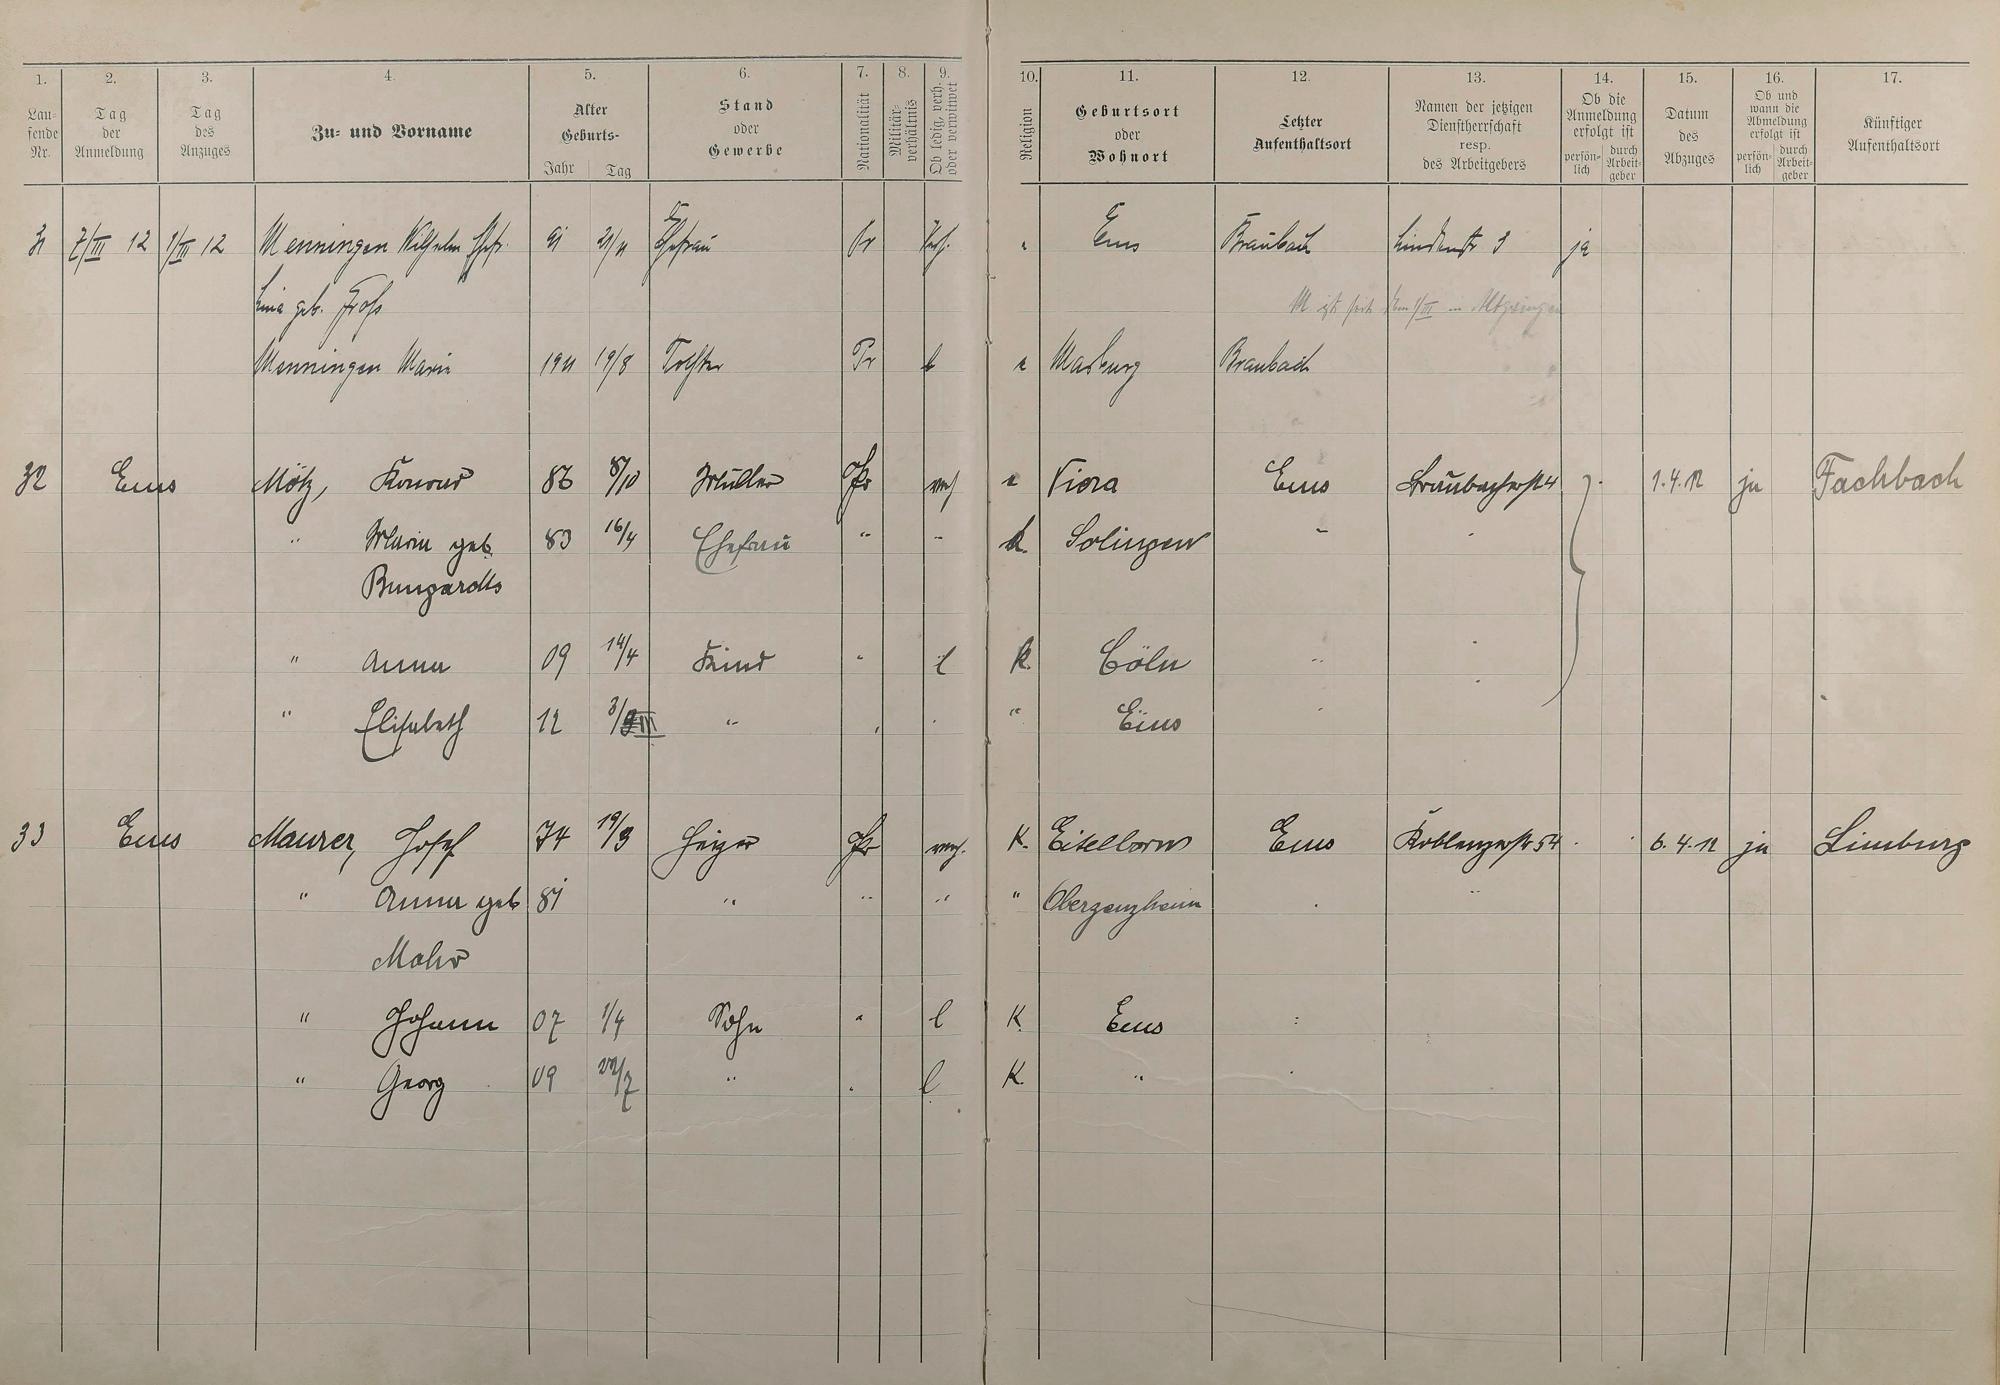 1. 2. 3. 4. 5. 6. 7. 8. 9. 10. 11. 12. 13. 14. 15. 16. 17.
Lau-
fende
Nr.
Tag
der
Anmeldung
Tag
des
Anzuges
Zu- und Vorname
Alter
Geburts-
Jahr Tag
Stand
oder
Gewerbe
Nationalität
Militär-
verhältnis
Ob ledig, verh.
oder verwitwet
Religion
Geburtsort
oder
Wohnort
Letzter
Aufenthaltsort
Namen der jetzigen
Dienstherrschaft
resp.
des Arbeitgebers
Ob die
Anmeldung
erfolgt ist
persön-
lich
durch
Arbeit-
geber
Datum
des
Abzuges
Ob und
wann die
Abmeldung
erfolgt ist
persön-
lich
durch
Arbeit-
geber
Künftiger
Aufenthaltsort
31 7/III 12 1/III 12 Menningen Wilhelm Ehefr. 91 21/11 Ehefrau Pr Verh. Ems Braubach Lindenstr 3 ja
Lina geb. Groß
M ist seit dem 1/III in
Menningen Marie 1911 19/8 Tochter Pr l Marburg Braubach
32 Ems Mötz, Konrad 86 8/10 Müller Pr verh Ems 1.4.12 ja Fachbach
" Maria geb. 83 16/4 Ehefrau " " k. Solingen "
Bungardts
" Anna 09 14/4 Kind " l k. Cöln "
" Elisabeth 12 3/III " " Ems
33 Ems Maurer, Josef 74 19/3 Heizer Pr verh. K. Eitelborn Ems Koblenzerstr 54 6.4.12 ja Limburg
" Anna geb 81 " " " " Oberzeuzheim "
Mohr
" Johann 07 1/4 Sohn " l K. Ems "
" Georg 09 22/7 " " l K. " "